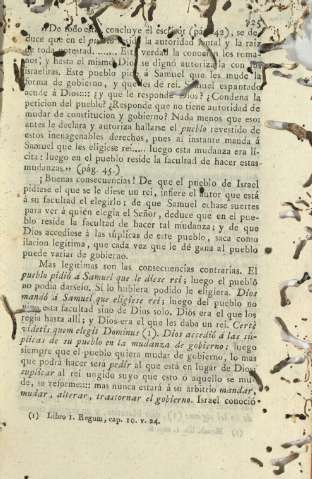 125
"De todo esto, concluye el escritor (pág. 42), se de-
duce que en el pueblo reside la autoridad y la raiz
de toda potestad. ..... Esta verdad la conocian los roma-
nos, y hasta el mismo se dignó autorizarla con los
Israelitas. Este pueblo pidió á Samuel que les mude la
forma de gobierno, y que les dé rei. Samuel espantado
á Dios::: ¿y qué le responde Dios? ¿Condena la
peticion del pueblo? ¿Responde que no tiene autoridad de
mudar de constitucion y gobierno? Nada menos que eso:
antes le declara y autoriza hallarse el pueblo revestido de
estos inagenables derechos, pues al instante manda á
Samuel que les eligiese rei..... luego esta mudanza era lí-
cita: luego en el pueblo reside la facultad de hacer estas
mudanzas." (pág. 45.)
¡Buenas consecuencias! De que el pueblo de Israel
pidiese el que se le diese un rei, infiere el autor que está
á su facultad el elegirlo; de que Samuel echase suertes
para ver á quién elegia el Señor, deduce que en el pue-
blo reside la facultad de hacer tal mudanza; y de que
Dios accediese á las súplicas de este pueblo, saca como
ilacion legítima, que cada vez que le dé gana al pueblo
puede variar de gobierno.
Mas legítimas son las consecuencias contrarias. El
pueblo pidió á Samuel que le diese rei; luego el pueblo
no podia darselo. Si lo hubiera podido le eligiera. Dios
mandó á Samuel que eligiese rei; luego del pueblo no
era esta facultad sino de Dios solo. Dios era el que los
regia hasta allí; y Dios era el que les daba un rei. Certè
videtis quem elegit Dominus (1). Dios accedió á las sú-
plicas de su pueblo en la mudanza de gobierno; luego
siempre que el pueblo quiera mudar de gobierno, lo mas
que podrá hacer será pedir al que está en lugar de Dios;
suplicar al rei ungido suyo que esto ó aquello se mu-
de, se reforme::: mas nunca estará á su arbitrio mandar,
mudar, alterar, trastornar el gobierno. Israel conoció
(1) Libro 1. Regum, cap. 10. v. 24.